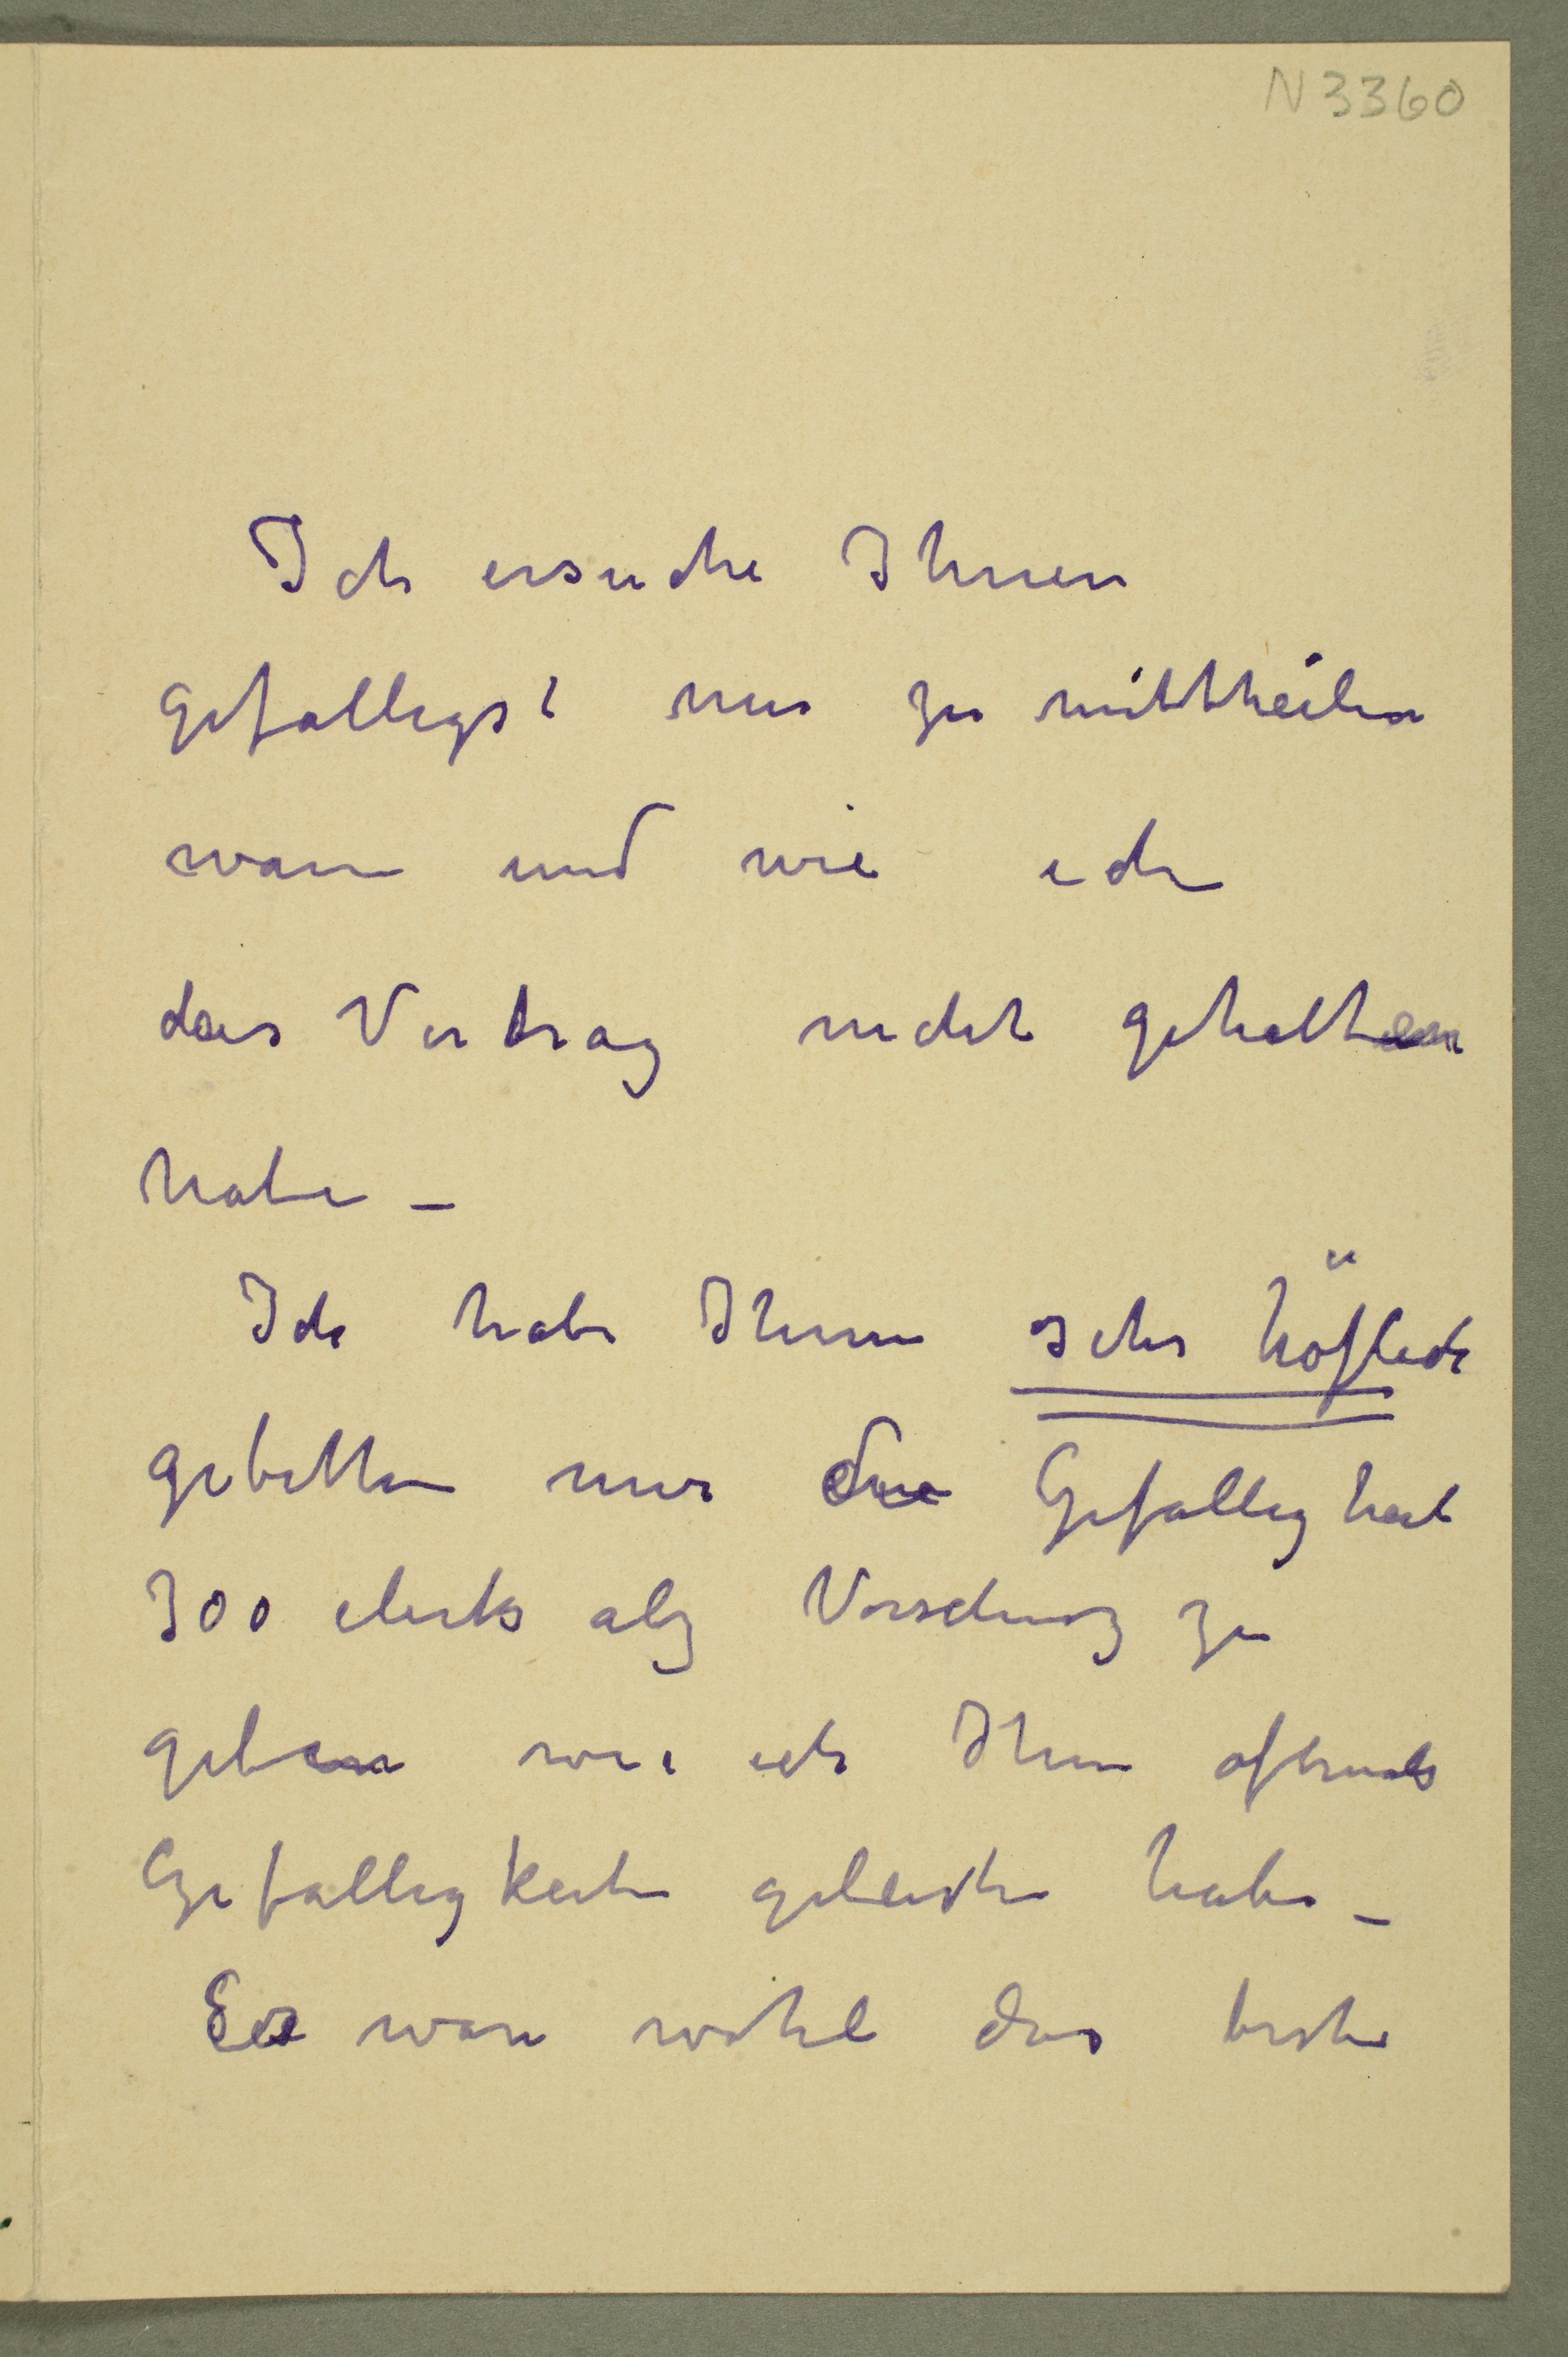 N 3360
Ich ersuche Ihnen
gefalligst mir zu mittheilen
wann und wie ich
das Vertrag nicht gehalten
habe –
Ich habe Ihnen sehr höflich
gebetten mir die Gefalligheit
300 Marks alz Vorschuz zu
geben wie ich Ihnen oftmals
Gefalligkeiten geleisten habe –
Es ware wohl das beste